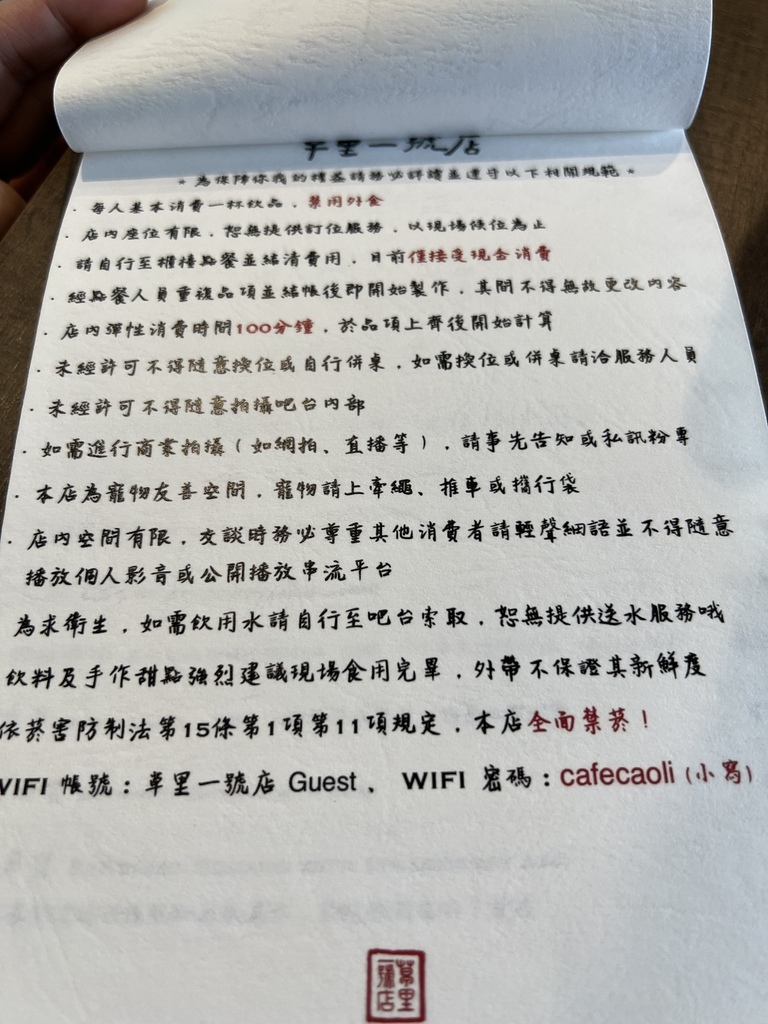 草里一號店
* 為保障你我的權益請務必詳讀並遵守以下相關規範 *
· 每人基本消費一杯飲品，禁用外食
· 店內座位有限，恕無提供訂位服務，以現場候位為止
· 請自行至櫃檯點餐並結清費用，目前僅接受現金消費
· 經點餐人員重複品項並結帳後即開始製作，其間不得無故更改內容
· 店內彈性消費時間100分鐘，於品項上齊後開始計算
· 未經許可不得隨意換位或自行併桌，如需換位或併桌請洽服務人員
· 未經許可不得隨意拍攝吧台內部
· 如需進行商業拍攝（如網拍、直播等），請事先告知或私訊粉專
· 本店為寵物友善空間，寵物請上牽繩、推車或攜行袋
· 店內空間有限，交談時務必尊重其他消費者請輕聲細語並不得隨意
播放個人影音或公開播放串流平台
為求衛生，如需飲用水請自行至吧台索取，恕無提供送水服務哦
飲料及手作甜點強烈建議現場食用完畢，外帶不保證其新鮮度
依菸害防制法第15條第1項第11項規定，本店全面禁菸！
WIFI 帳號：草里一號店 Guest 、 WIFI 密碼：cafecaoli (小寫)
草里一號店